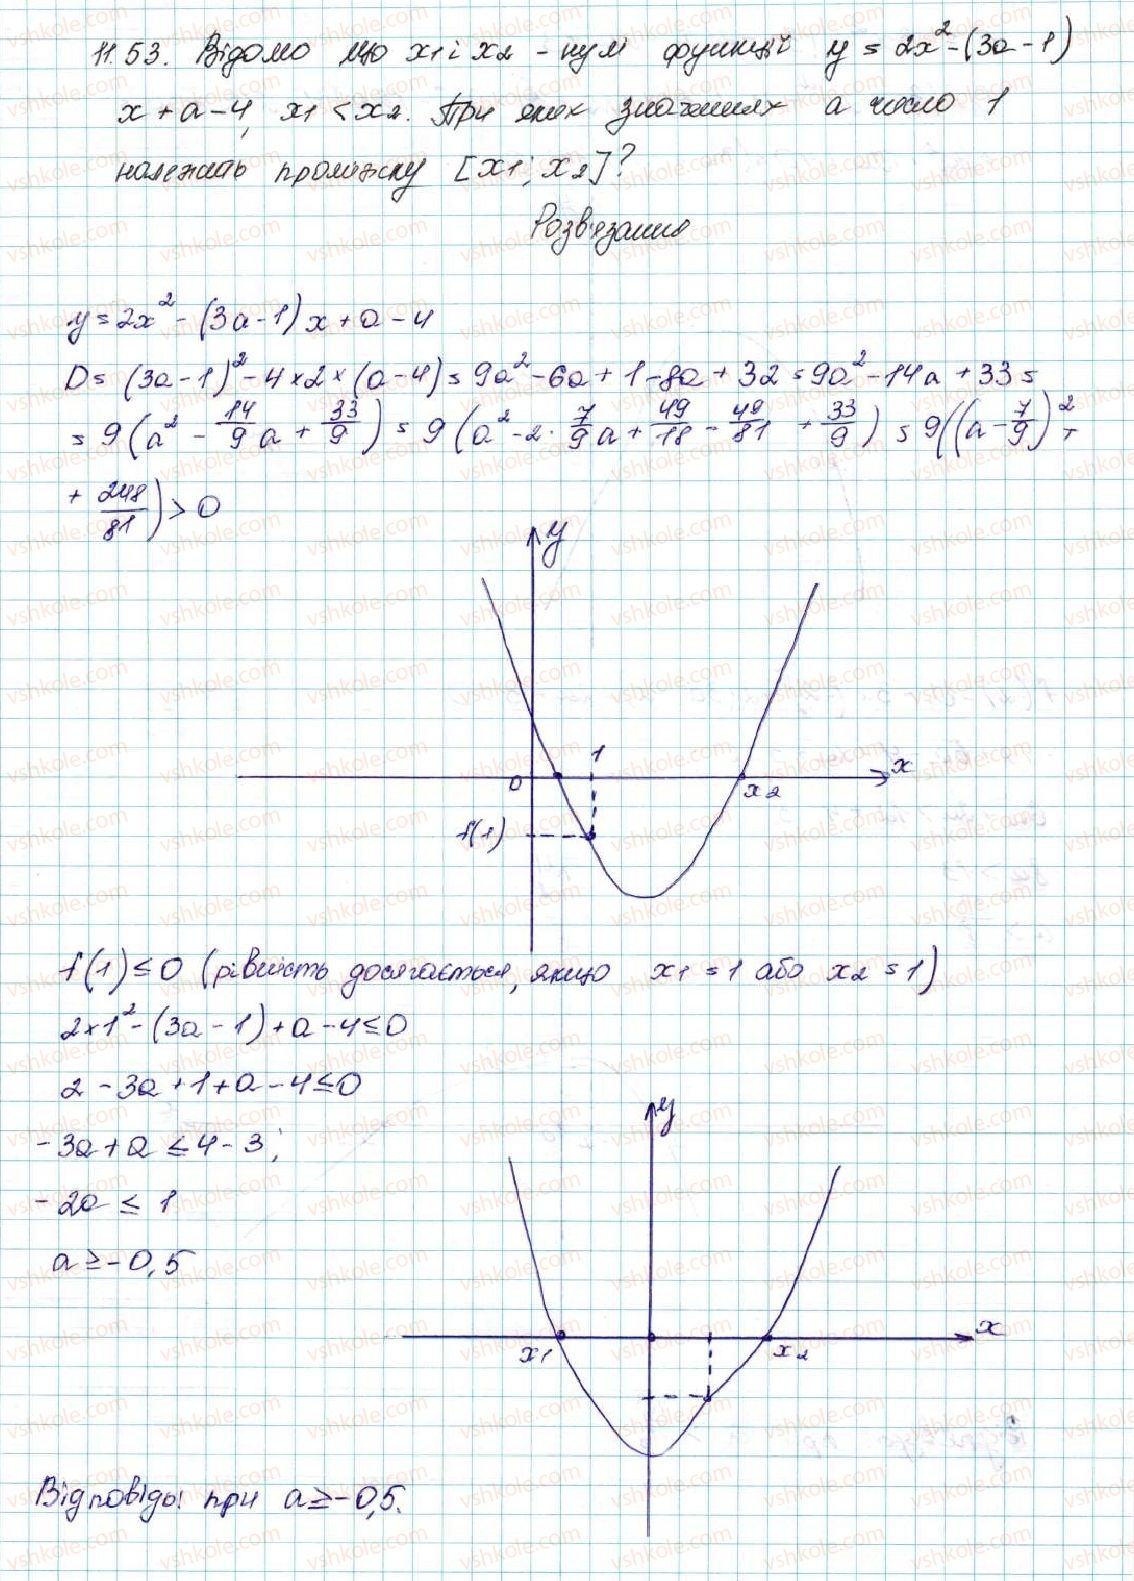 11.53. Відомо що x1 і x2 - нулі функції y = 2x²-(3a-1)
x+a-4, x1 < x2. При яких значеннях a число 1
належать проміжку [x1; x2]?
Розв'язання
y=2x²-(3a-1)x+a-4
D= (3a-1)²-4×2×(a-4)=9a²-6a+1-8a+32=9a²-14a+33=
=9(a²-14/9a+33/9)=9(a²-2·7/9a+49/18-49/81+33/9)=9((a-7/9)²+
+248/81)>0
y
1
0
x2
x
f(1)
f(1)≤0 (рівність досягається, якщо x1=1 або x2=1)
2×1²-(3a-1)+a-4≤0
2-3a+1+a-4≤0
-3a+a≤4-3;
-2a≤1
a≥-0,5
y
x1
x2
x
Відповідь: при a≥-0,5.
vshkole.com